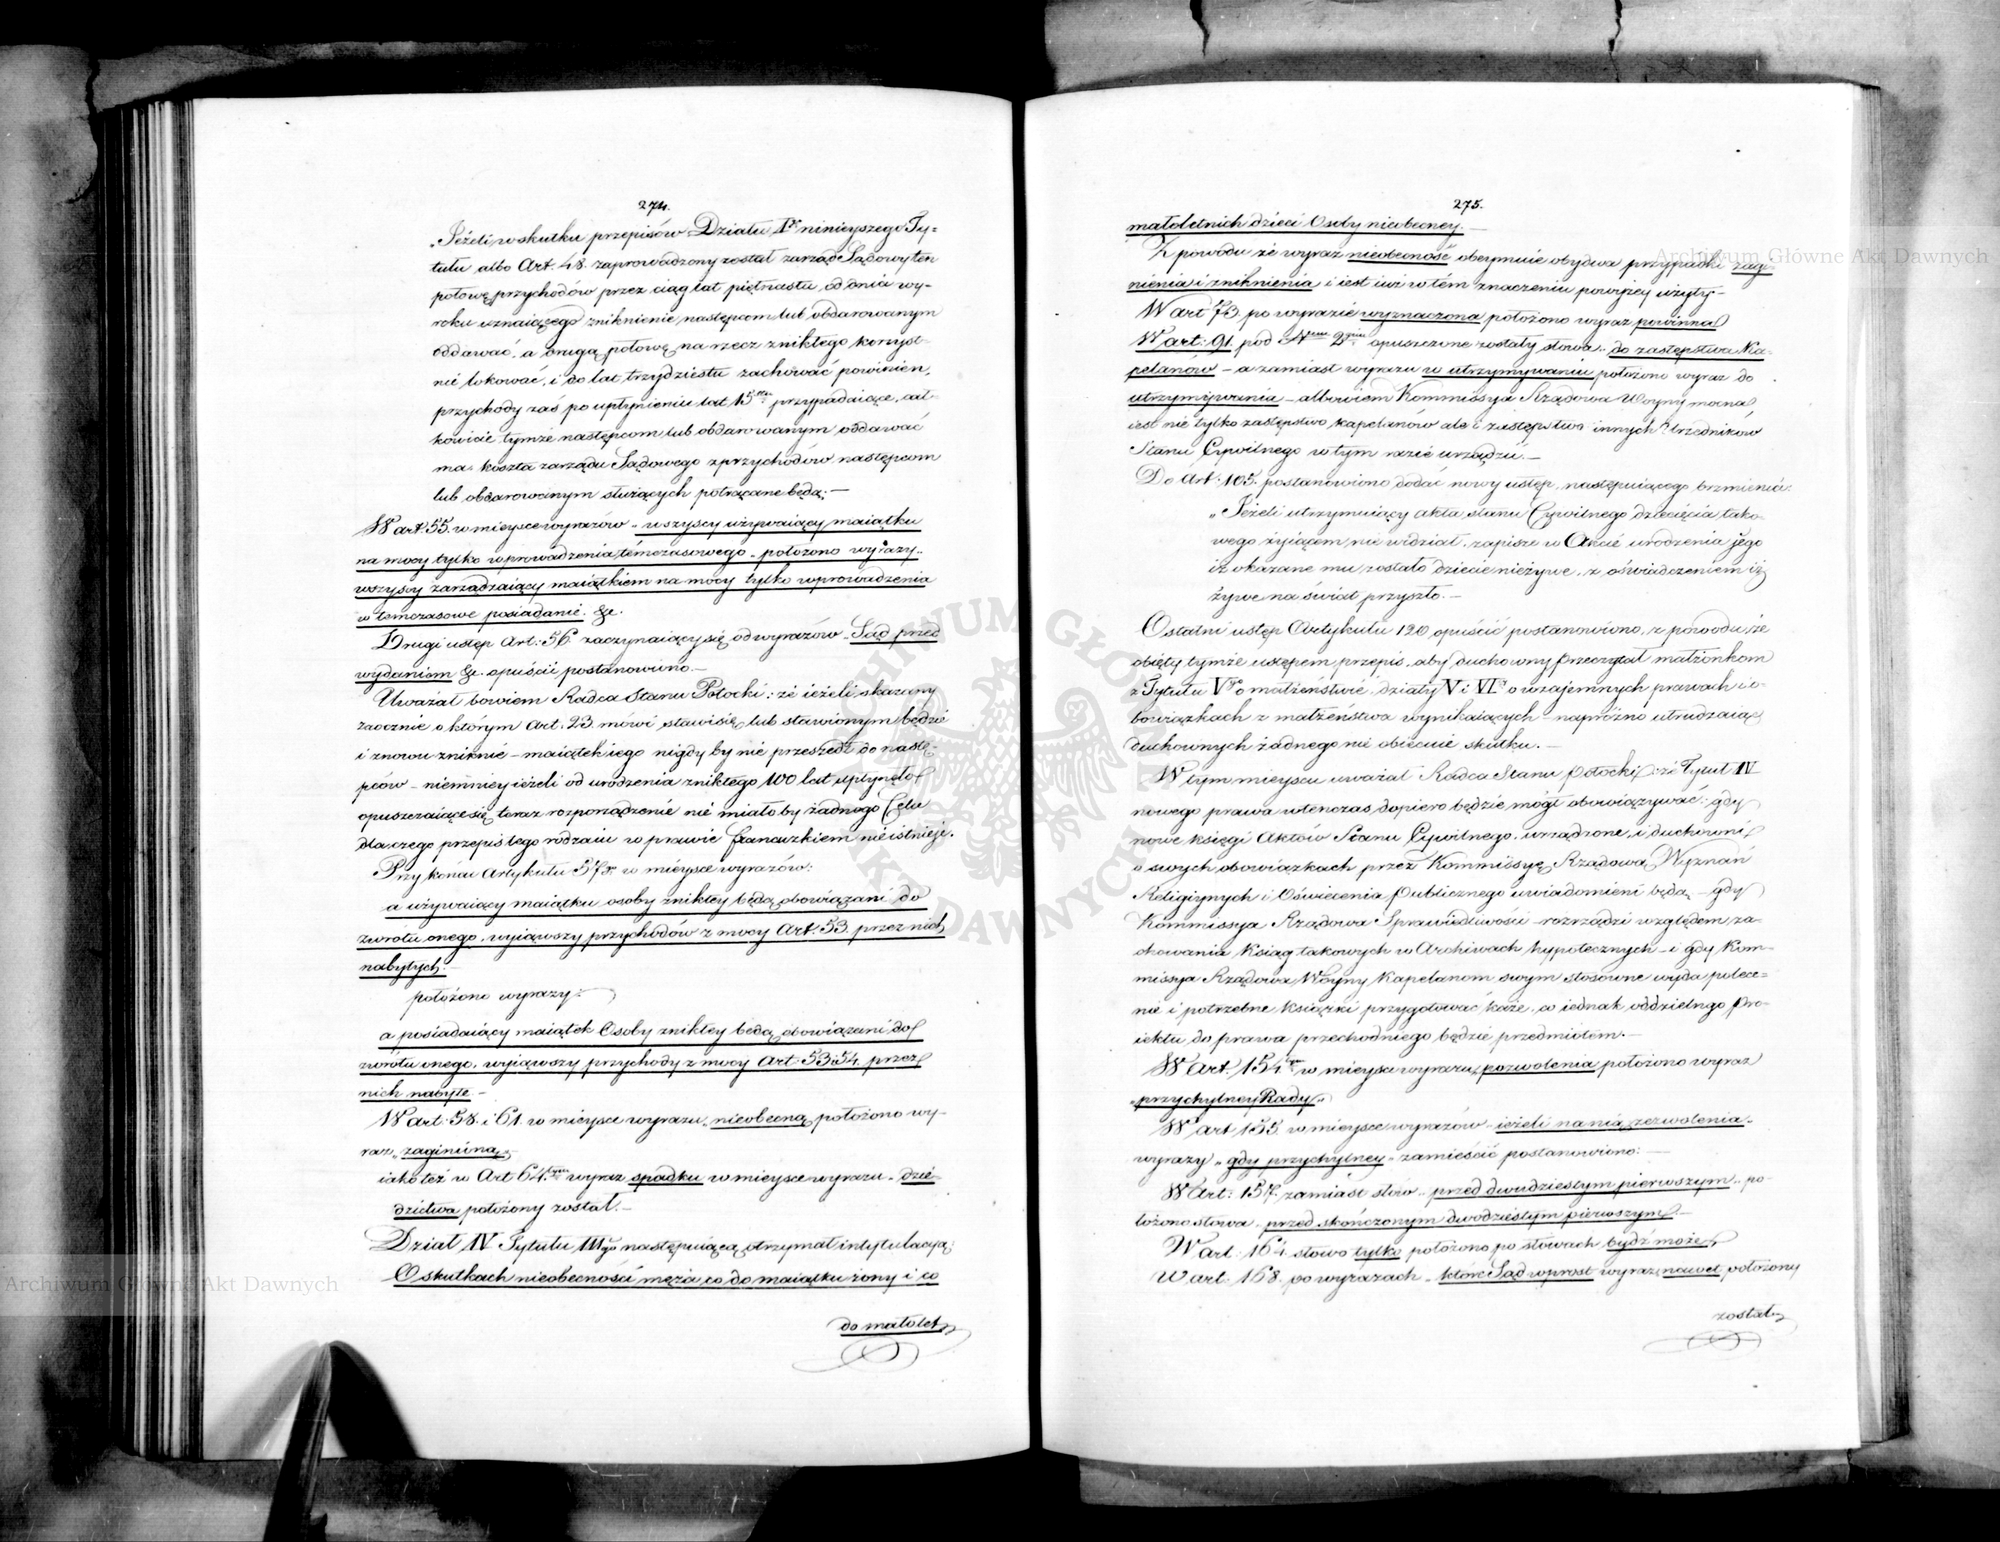 274.
„Jeżeli w skutku przepisów Działu I° ninieyszego Ty-
tułu albo Art. 48. zaprowadzony został zarząd Sądowy ten
połowę przychodów przez ciąg lat piętnastu, od dnia wy-
roku uznaiącego zniknienie, następcom lub obdarowanym
oddawać, a drugą połowę na rzecz znikłego korzyst-
nie lokować, i do lat trzydziestu zachować powinien,
przychody zaś po upłynieniu lat 15stu przypadaiące, cał-
kowicie tymże następcom lub obdarowanym oddawać
ma. koszta zarządu Sądowego z przychodów następcom
lub obdarowanym służących potrącane będą. —
W art. 55. w mieysce wyrazów „wszyscy używaiący maiątku
na mocy tylko wprowadzenia témczasowego„ położono wyrazy„
wszyscy zarządzaiący maiątkiem na mocy tylko wprowadzenia
w temczasowe posiadanie. &c.
Drugi ustęp Art: 56. zaczynaiący się od wyrazów „Sąd przed
wydaniem &c. opuścić postanowiono. —
Uważał bowiem Radca Stanu Potocki: że ieżeli skazany
zaocznie o którym Art: 23 mówi, stawi się, lub stawionym będzie
i znowu zniknie – maiątek iego nigdy by nie przeszedł do nastę-
pców – niemniey ieżeli od urodzenia znikłego 100 lat upłynęło
opuszczaiące się teraz rozporządzenie nie miałoby żadnego Celu
dla czego przepis tego rodzaiu w prawie francuzkiem nie istnieje.
Przy końcu Artykułu 57go w mieysce wyrazów:
a używaiący maiątku osoby znikłey będą obowiązani do
zwrotu onego, wyiąwszy przychodów z mocy Art. 53. przez nich
nabytych. —
położono wyrazy:
a posiadaiący maiątek Osoby znikłey będą obowiązani do
zwrotu onego, wyiąwszy przychody z mocy Art. 53 i 54. przez
nich nabyte —
W art: 58. i 61. w mieysce wyrazu „nieobecną„ położono wy-
raz „zaginioną„ —
iako też w Art 64tym wyraz spadku w mieysce wyrazu „dzie-
dzictwa położony został. —
Dział IV Tytułu IIIgo następuiącą otrzymał intytulacyą:
O skutkach nieobecności męża co do maiątku żony i co
do małolet
275.
małoletnich dzieci Osoby nieobecney. —
Z powodu że wyraz nieobecność obeymuie obydwa przypadki zagi-
nienia i zniknienia i iest iuż w tém znaczeniu powyżey użyty –
W art 73. po wyrazie wyznaczona położono wyraz powinna
W art: 91. pod Nrem 2gim opuszczone zostały słowa: do zastępstwa Ka-
pelanów – a zamiast wyrazu w utrzymywaniu położono wyraz do
utrzymywania – albowiem Kommissya Rządowa Woyny mocna
iest nie tylko zastępstwo kapelanów ale i zastępstwo innych Urzedników
Stanu Cywilnego w tym razie urządzić. —
Do Art: 105. postanowiono dodać nowy ustęp, następuiącego brzmienia:
„Jeżeli utrzymuiący akta stanu Cywilnego dziecięcia tako-
wego żyiącem nie widział, zapisze w Akcie urodzenia jego
iż okazane mu zostało dziecie nieżywe, z oświadczeniem iż
żywe na świat przyszło. —
Ostatni ustęp Artykułu 120, opuścić postanowiono, z powodu, że
obięty tymże ustępem przepis, aby duchowny przeczytał małżonkom
z Tytułu Vgo o małżeństwie, działy V i VI° o wzajemnych prawach i o-
bowiązkach z małżeństwa wynikaiących – napróżno utrudzaiąc
duchownych żadnego nie obiecuie skutku. —
W tym mieyscu uważał Radca Stanu Potocki: że Tytuł IV
nowego prawa wtenczas dopiero będzie mógł obowiązywać: gdy
nowe księgi Aktów Stanu Cywilnego, urządzone, i duchowni
o swych obowiązkach przez Kommissyę Rządową Wyznań
Religiynych i Oświecenia Publicznego uwiadomieni będą – gdy
Kommissya Rządowa Sprawiedliwości rozrządzi względem za-
chowania Ksiąg takowych w Archiwach hypotecznych – i gdy Kom-
missya Rządowa Woyny Kapelanom swym stosowne wyda polece-
nie i potrzebne Książki przygotować każe, co iednak oddzielnego Pro-
iektu do prawa przechodniego będzie przedmiotem. —
W Art: 154tym w mieysce wyrazu „pozwolenia położono wyraz
„przychylney Rady„
W Art 155. w mieysce wyrazów – ieżeli na nią zezwolenia„
wyrazy „gdy przychylney„ zamieścić postanowiono: —
W Art: 157. zamiast słów „przed dwudziestym pierwszym„ po-
łożono słowa „przed skończonym dwódziestym pierwszym. —
W art: 164. słowo tylko położono po słowach bydź może„
W art: 168. po wyrazach „które Sąd wprost wyraz „nawet położony
został
Archiwum Główne Akt Dawnych
Archiwum Główne Akt Dawnych
ARCHIWUM GŁÓWNE AKT DAWNYCH